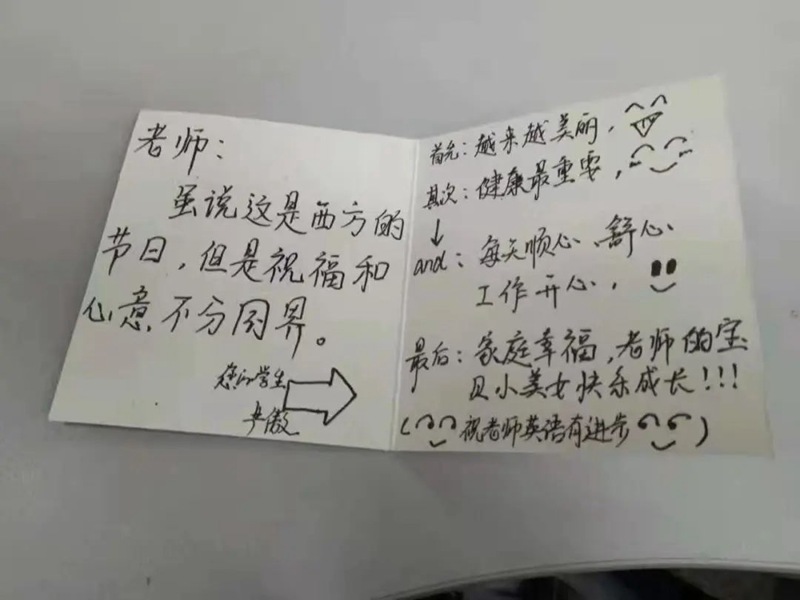 老师：
虽说这是西方的
节日，但是祝福和
心意不分国界。
您的学生
首先：越来越美丽，
其次：健康最重要，
and：每天顺心、舒心
工作开心，
最后：家庭幸福，老师的宝
贝小美女快乐成长！！！
（祝老师英语有进步）